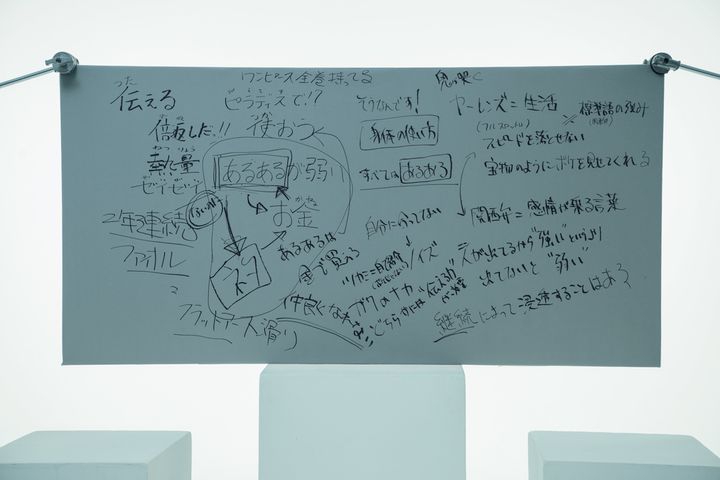 ワンピース全巻持ってる
つた
伝える
ピラティスで!?
使おう
倍返しだ!!
ねつりょう
熱量
ゼイゼイ
あるあるが弱い
お金
2年連続
ファイル
ネタ
あるあるは
金で買える
フラットアース滑り
仲良くなきゃ
そうなんです!
身体の使い方
すべてのあるある
自分に合ってない
ツカミ=自己紹介
ノイズ
ガクのナカ
どちらかには
伝える力
ヤーレンズ=生活
標準語の強み
スピードを落とせない
宝物のようにボケを見せてくれる
関西弁=感情が乗る言葉
えが出てるから“強い”というより
出てないと“弱い”
継続によって浸透することはある